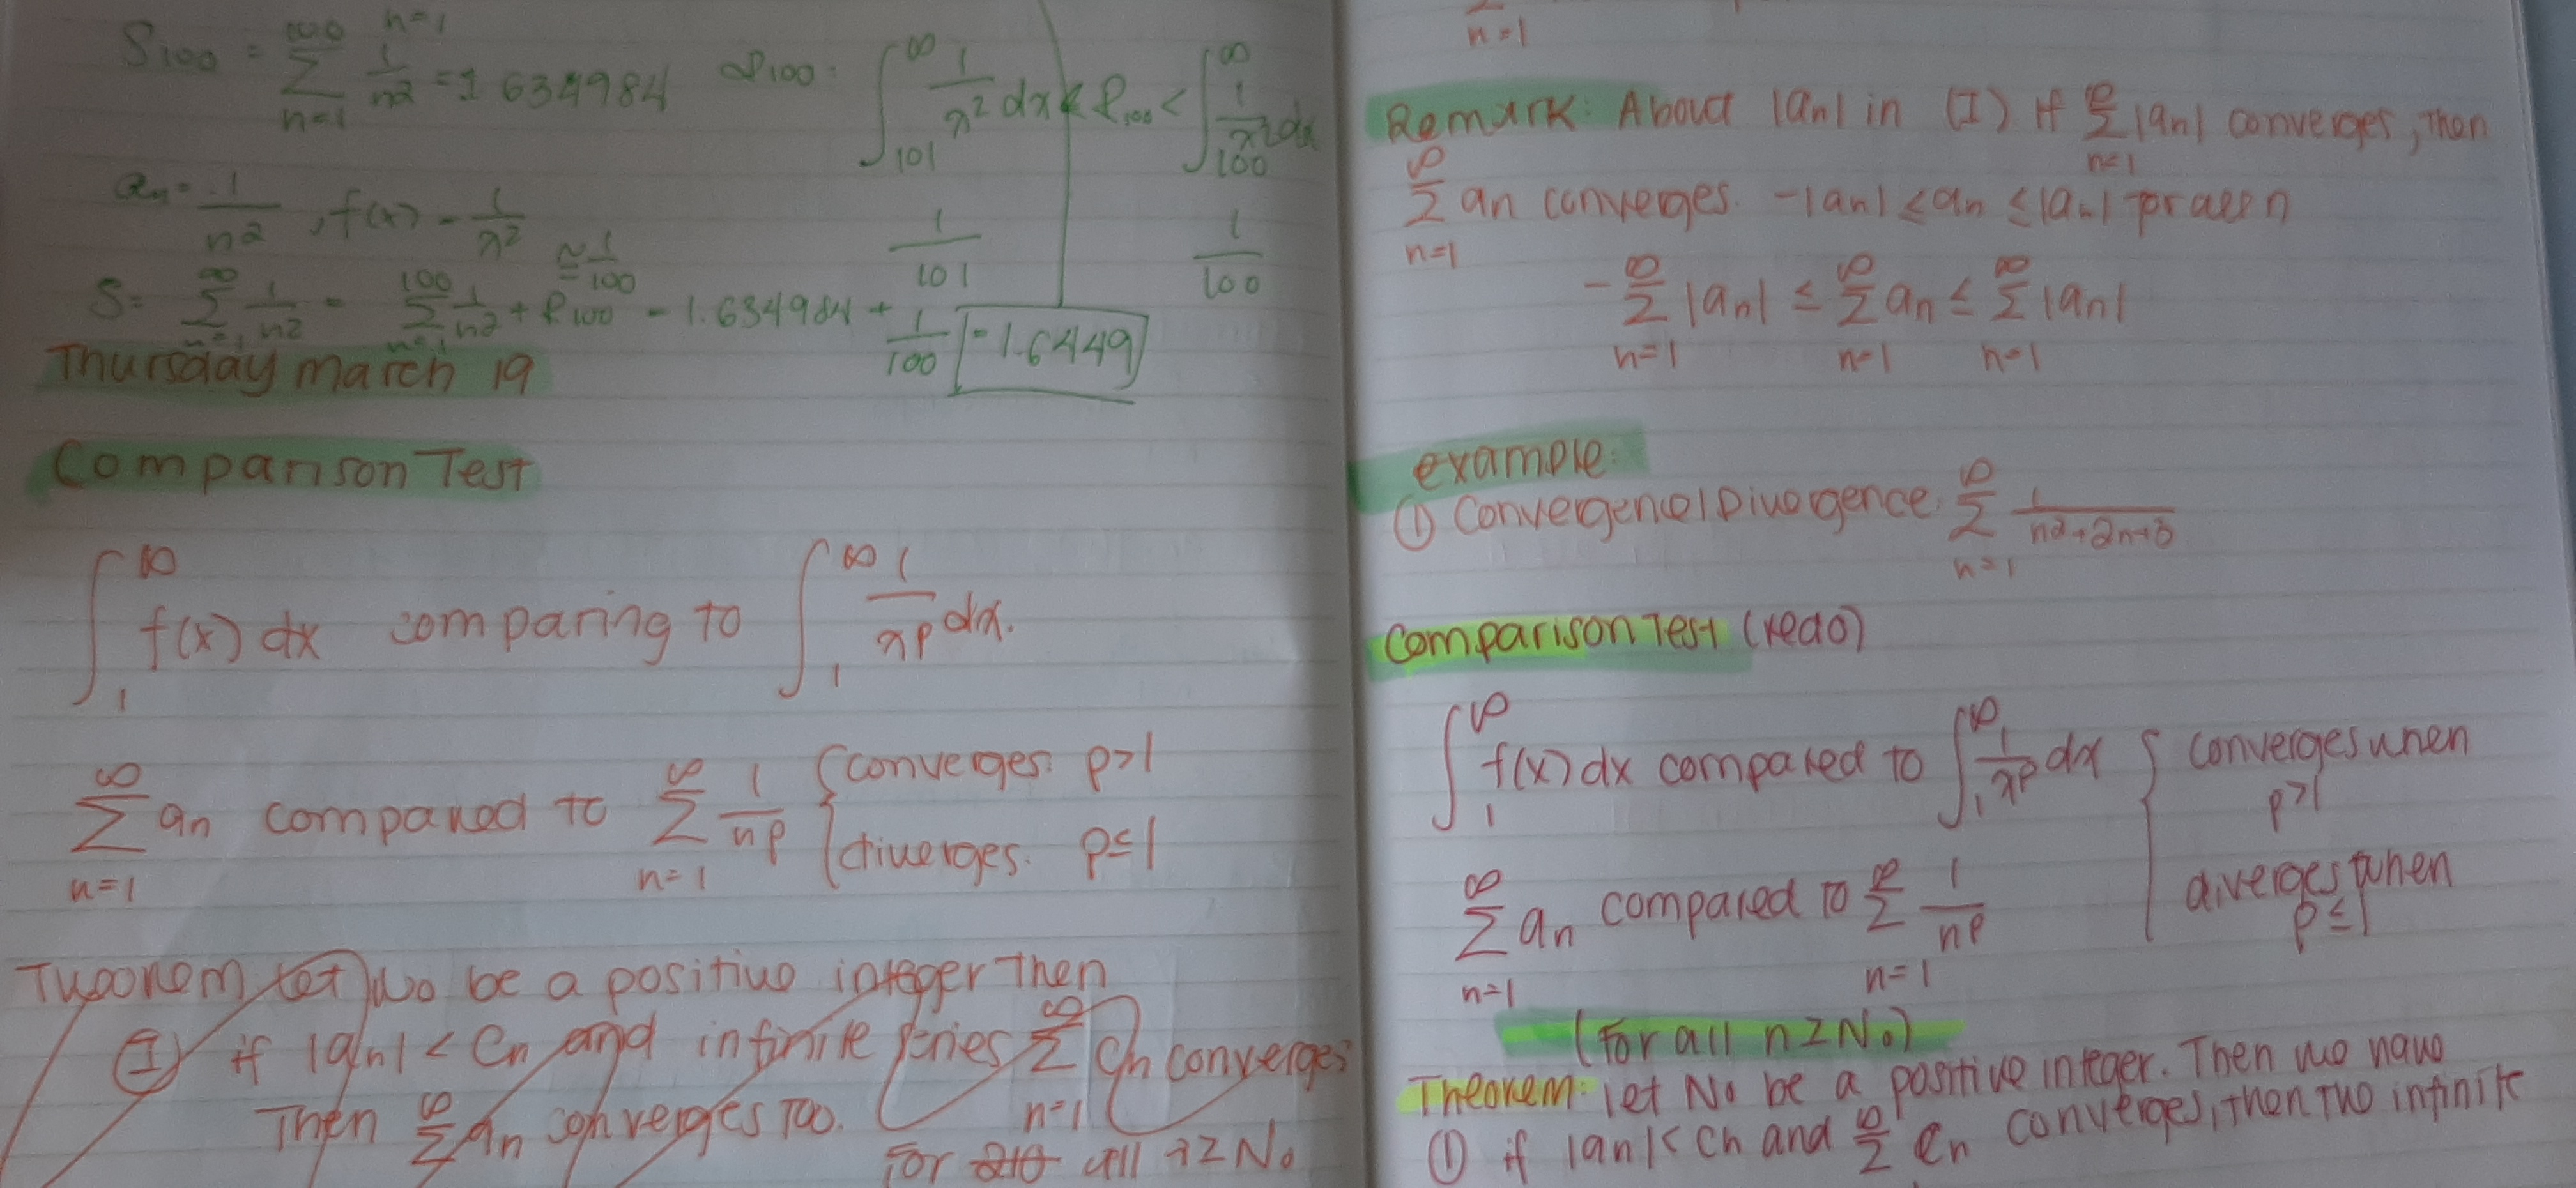 n=1
S₁₀₀ = Σ_{n=1}^{100} 1/n² = 1.634984 R₁₀₀: ∫_{101}^{∞} 1/x² dx < R₁₀₀ < ∫_{100}^{∞} 1/x² dx
aₙ = 1/n², f(x) = 1/x² ≈ 1/100 1/101 1/100
S = Σ_{n=1}^{∞} 1/n² = Σ_{n=1}^{100} 1/n² + R₁₀₀ = 1.634984 + 1/100 = 1.6449
Thursday march 19
Comparison Test
∫_1^∞ f(x) dx comparing to ∫_1^∞ 1/xᵖ dx.
Σ_{n=1}^∞ aₙ compared to Σ_{n=1}^∞ 1/nᵖ { converges: p>1
diverges: p≤1
Theorem let N₀ be a positive integer Then
(I) if |aₙ| < Cₙ and infinite series Σ_{n=1}^∞ Cₙ converges
Then Σ^∞ aₙ converges too. For all n≥N₀
n=1
Remark: About |aₙ| in (I) If Σ_{n=1}^∞ |aₙ| converges, then
Σ_{n=1}^∞ aₙ converges. -|aₙ| ≤ aₙ ≤ |aₙ| for all n
-Σ_{n=1}^∞ |aₙ| ≤ Σ_{n=1}^∞ aₙ ≤ Σ_{n=1}^∞ |aₙ|
example:
① Convergence/Divergence: Σ_{n=1}^∞ 1/(n²+2n+3)
Comparison Test (redo)
∫_1^∞ f(x) dx compared to ∫_1^∞ 1/xᵖ dx { converges when
p>1
Σ_{n=1}^∞ aₙ compared to Σ_{n=1}^∞ 1/nᵖ diverges when
p≤1
(For all n≥N₀)
Theorem: let N₀ be a positive integer. Then we have
① if |aₙ| < Cₙ and Σ^∞ Cₙ converges, then the infinite